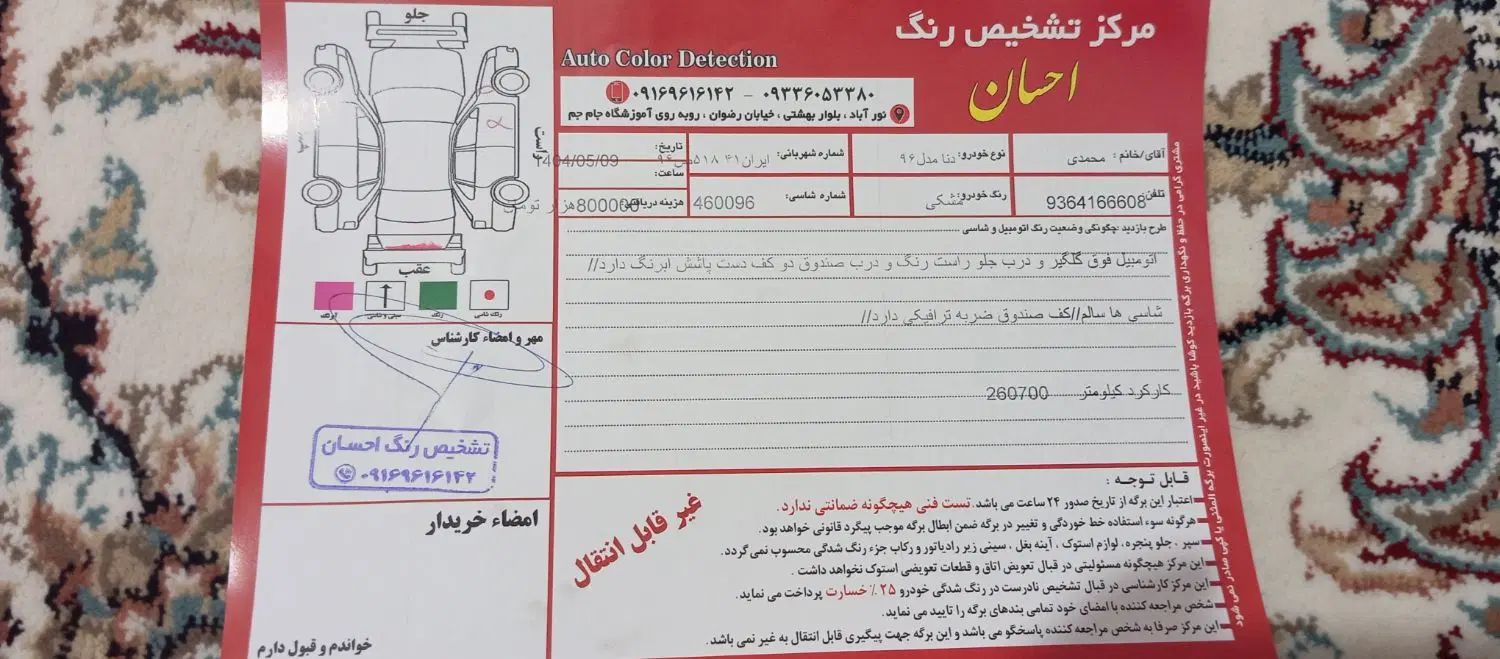 مرکز تشخیص رنگ
احسان
Auto Color Detection
۰۹۱۶۹۶۱۶۱۴۲ - ۰۹۳۳۶۰۵۳۳۸۰
نور آباد ، بلوار بهشتی ، خیابان رضوان ، روبه روی آموزشگاه جام جم
آقای/خانم : محمدی
نوع خودرو: دنا مدل ۹۶
شماره شهربانی: ایران ۴۱ ۵۱۸س۹۶
تاریخ: 1404/05/09
ساعت:
تلفن: 9364166608
رنگ خودرو: مشکی
شماره شاسی: 460096
هزینه دریافتی: 800000هزار تومان
طرح بازدید :چگونگی وضعیت رنگ اتومبیل و شاسی
اتومبیل فوق گلگیر و درب جلو راست رنگ و درب صندوق دو کف دست پاشش ابرنگ دارد//
شاسی ها سالم//کف صندوق ضربه ترافیکی دارد//
کارکرد کیلومتر 260700
قابل توجه :
اعتبار این برگه از تاریخ صدور ۲۴ ساعت می باشد. تست فنی هیچگونه ضمانتی ندارد.
هرگونه سوء استفاده خط خوردگی و تغییر در برگه ضمن ابطال برگه موجب پیگرد قانونی خواهد بود.
سپر ، جلو پنجره، لوازم استوک ، آینه بغل ، سینی زیر رادیاتور و رکاب جزء رنگ شدگی محسوب نمی گردد.
این مرکز هیچگونه مسئولیتی در قبال تعویض اتاق و قطعات تعویضی استوک نخواهد داشت .
این مرکز کارشناسی در قبال تشخیص نادرست در رنگ شدگی خودرو ۲۵٪ خسارت پرداخت می نماید.
شخص مراجعه کننده با امضای خود تمامی بندهای برگه را تایید می نماید.
این مرکز صرفا به شخص مراجعه کننده پاسخگو می باشد و این برگه جهت پیگیری قابل انتقال به غیر نمی باشد.
غیر قابل انتقال
مشتری گرامی در حفظ و نگهداری برگه بازدید کوشا باشید در غیر اینصورت برگه المثنی یا کپی صادر نمی شود
جلو
راست
عقب
رنگ شاسی
رنگ
آبرنگ
مهر و امضاء کارشناس
تشخیص رنگ احسان
۰۹۱۶۹۶۱۶۱۴۲
امضاء خریدار
خواندم و قبول دارم